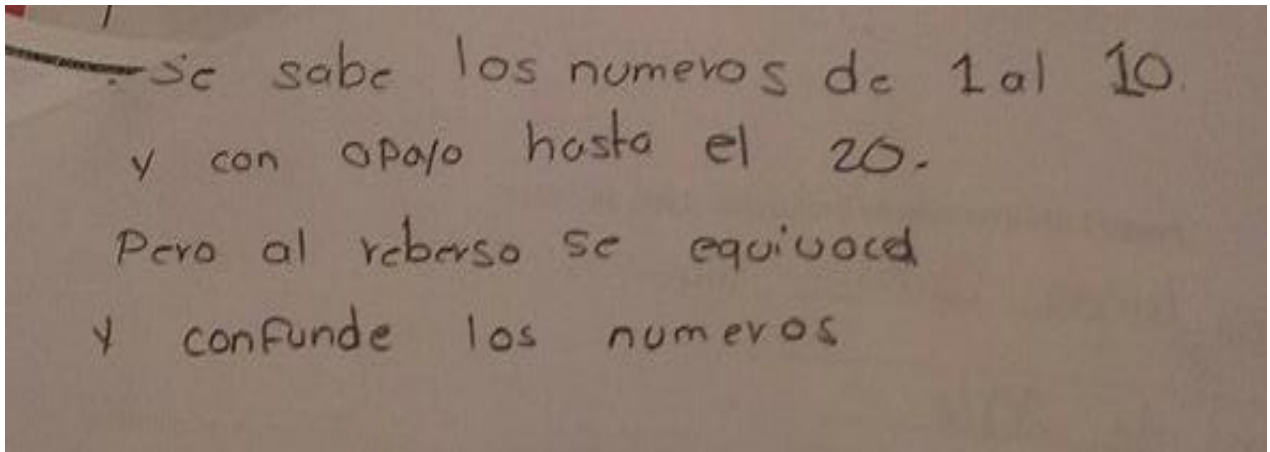 - Se sabe los numeros de 1 al 10.
y con apoyo hasta el 20.
Pero al reberso se equivoca
y confunde los numeros